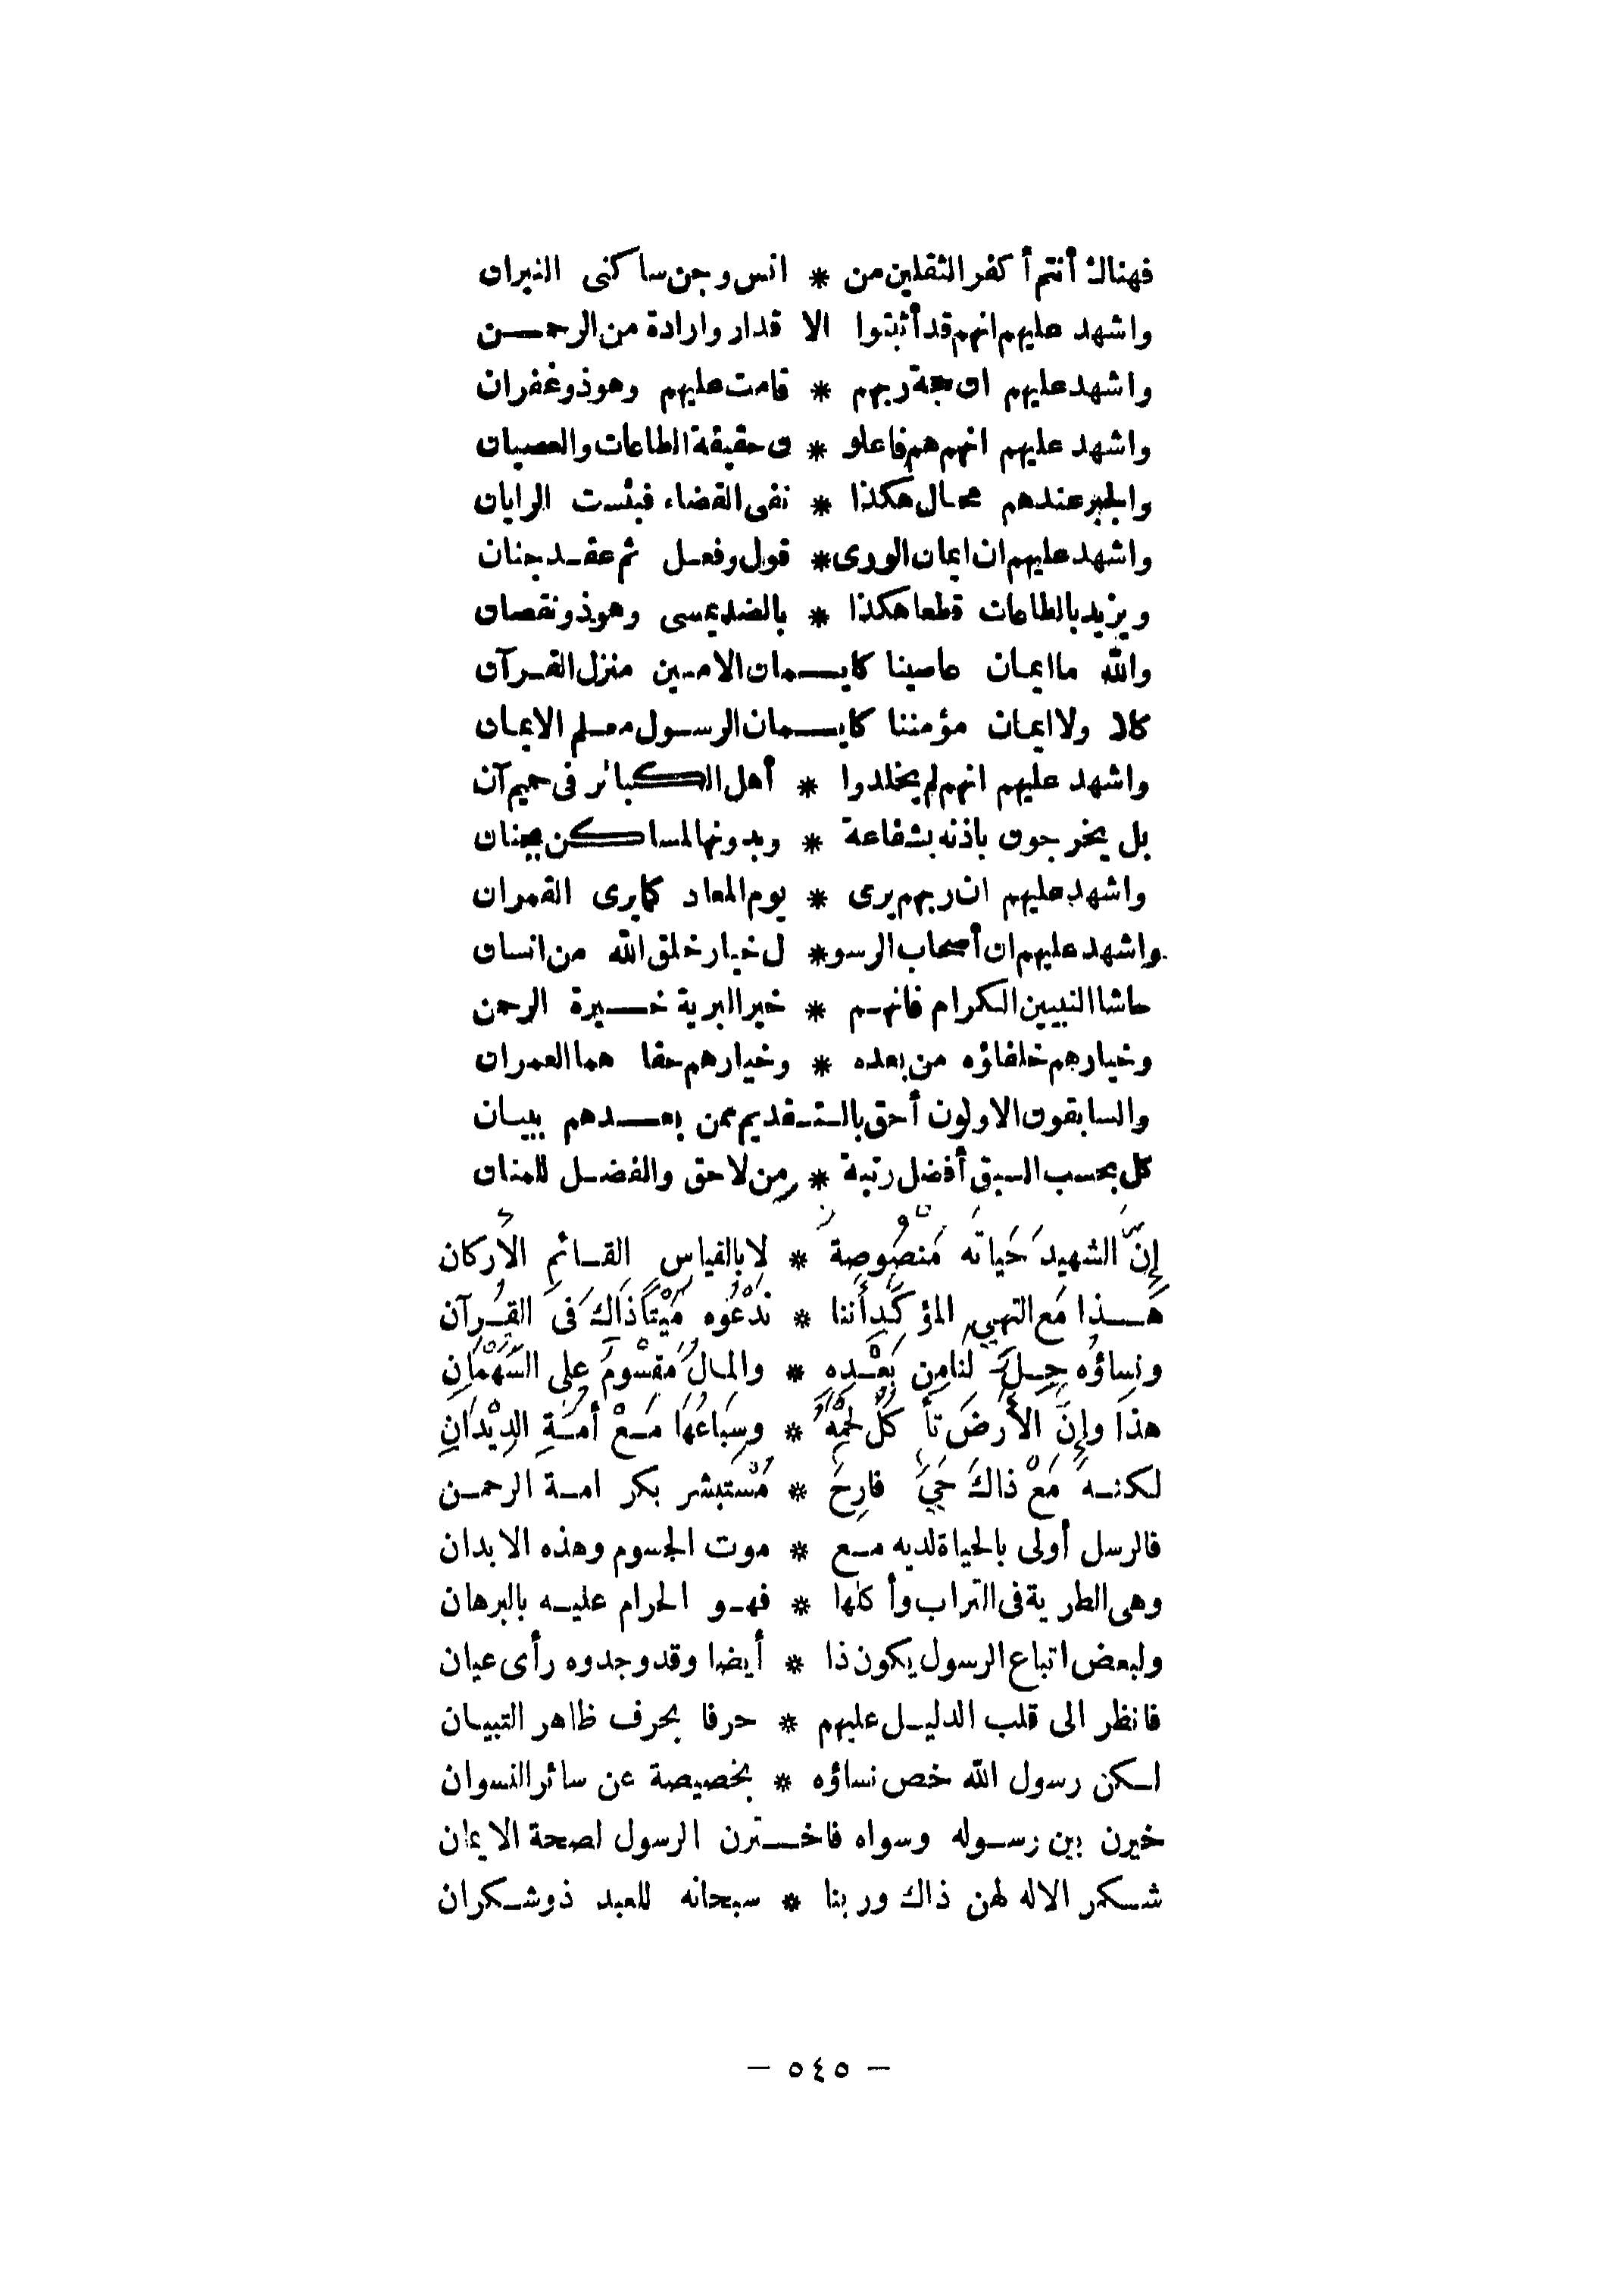 فهناك أنتم أكفر الثقلين من * انس وجن ساكنى النيران
واشهد عليهم انهم قد أثبتوا الا قدار وارادة من الرحمــن
واشهد عليهم ان حجة ربهم * قامت عليهم وهو ذو غفران
واشهد عليهم انهم هم فاعلو * ن حقيقة الطاعات والعصيان
والجبر عندهم محال هكذا * نفى القضاء فبئست الرايان
واشهد عليهم ان ايمان الورى * قول وفعـل ثم عقـد جنان
ويزيد بالطاعات قطعا هكذا * بالضد يمسى وهو ذو نقصان
والله ما ايمان عاصينا كايــمان الامـين منزل القـرآن
كلا ولا ايمان مؤمننا كايــمان الرسـول معـلم الايمان
واشهد عليهم انهم لم يخلدوا * أهل الكبائر فى حميم آن
بل يخرجون باذنه بشفاعة * وبدونها لمساكن بجنان
واشهد عليهم ان ربهم يرى * يوم المعاد كما يرى القمران
واشهد عليهم ان أصحاب الرسو * ل خيار خلق الله من انسان
حاشا النبيين الكرام فانهـم * خير البرية خــيرة الرحمن
وخيارهم خلفاؤه من بعده * وخيارهم حقا هما العمران
والسابقون الاولون أحق بالتـقديم ممن بعــدهم ببيـان
كل بحسب السبق أفضل رتبة * من لاحق والفضـل للمنان
إنّ الشهيدَ حَياته مَنصُوصة * لا بالقياس القـائمِ الأركان
هَــذا مَع النهىِ المؤكَّدِ أننا * نَدْعُوه مَيْتاً ذَاكَ فى القُرآن
ونِساؤُه حِـلٌّ لنا مِن بَعْـدِهِ * والمـالُ مَقسُومٌ على السُّهْمَانِ
هذا وإنَّ الأرضَ تأكلُ لحمَهُ * وسِبَاعُهَا مَـعْ أمـَّةِ الدِيْدَانِ
لكنـهُ مَعْ ذاكَ حَىٌّ فارِحٌ * مُسْتبشر بكرامـة الرحمـن
فالرسل أولى بالحياة لديه مـع * موت الجسوم وهذه الابدان
وهى الطرية فى التراب وأكلها * فهـو الحرام عليـه بالبرهان
ولبعض اتباع الرسول يكون ذا * أيضا وقد وجدوه رأى عيان
فانظر الى قلب الدليـل عليهم * حرفا بحرف ظاهر التبيـان
لـكن رسول الله خص نساؤه * بخصيصة عن سائر النسوان
خيرن بين رسـوله وسواه فاخــترن الرسول لصحة الايمان
شـكر الاله لهن ذاك وربنا * سبحانه للعبد ذو شـكران
— ٥٤٥ —